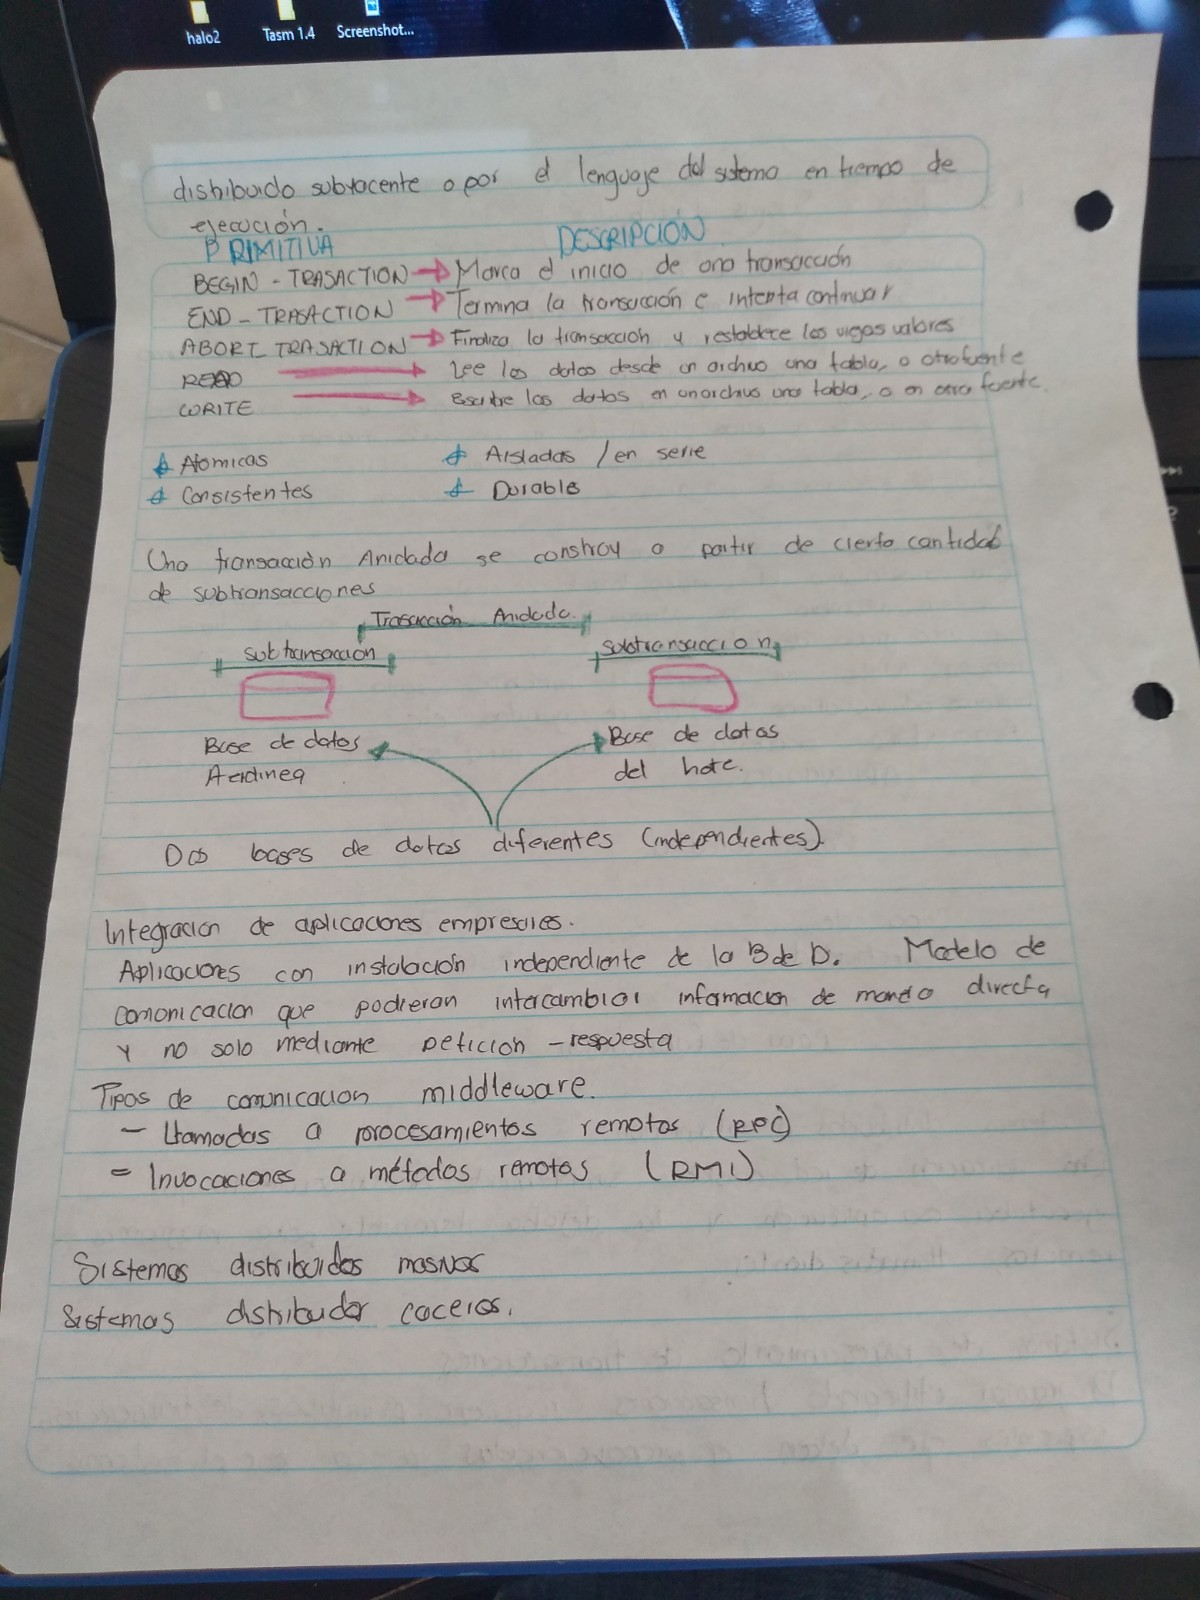 halo2
Tasm 1.4
Screenshot...
distribuido subyacente o por el lenguaje del sistema en tiempo de
ejecución.
PRIMITIVA DESCRIPCIÓN
BEGIN - TRASACTION → Marca el inicio de una transacción
END - TRASACTION → Termina la transacción e intenta continuar
ABORT TRASACTION → Finaliza la transacción y restablece los viejos valores
READ → Lee los datos desde un archivo una tabla, o otro fuente
WRITE → Escribe los datos en un archivo una tabla, o en otra fuente.
Atomicas Aisladas / en serie
Consistentes Durable
Una transacción Anidada se construy a partir de cierta cantidad
de subtransacciones
Trasacción Anidada.
subtransacción subtransaccion
Base de datos Base de datos
Aerolinea del hote.
Dos bases de datos diferentes (independientes).
Integración de aplicaciones
Aplicaciones con instalación independiente de la B de D. Modelo de
comunicación que pudieran intercambiar información de manera directa
y no solo mediante petición - respuesta
Tipos de comunicacion middleware.
- Llamadas a procesamientos remotos (RPC)
- Invocaciones a métodos remotos (RMI)
Sistemas distribuidos masivos
Sistemas distribuidor caceros.